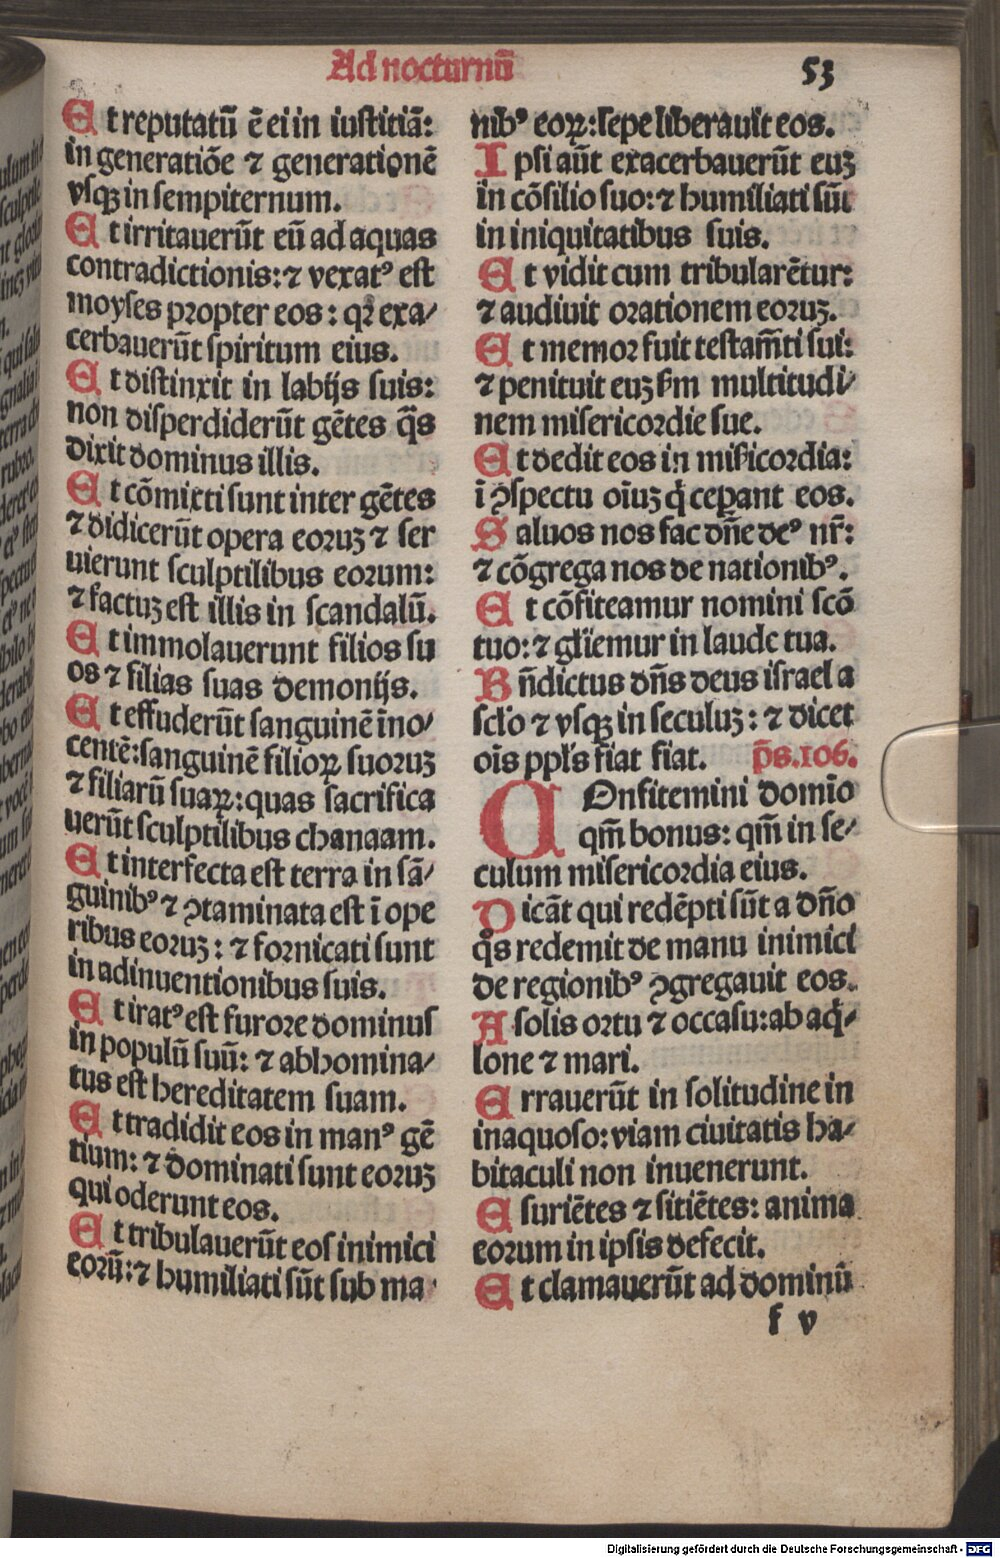 Ad nocturnū
53
Et reputatū ē ei in iustitiā:
in generatiōe ⁊ generationē
vsqꝫ in sempiternum.
Et irritauerūt eū ad aquas
contradictionis: ⁊ vexatꝰ est
moyses propter eos: qꝛ exa/
cerbauerūt spiritum eius.
Et distinxit in labijs suis:
non disperdiderūt gētes q̄s
dixit dominus illis.
Et cōmixti sunt inter gētes
⁊ didicerūt opera eoruꝫ ⁊ ser
uierunt sculptilibus eorum:
⁊ factuꝫ est illis in scandalū.
Et immolauerunt filios su
os ⁊ filias suas demonijs.
Et effuderūt sanguinē īno/
centē: sanguinē filioꝝ suoruꝫ
⁊ filiarū suaꝝ: quas sacrifica
uerūt sculptilibus chanaam.
Et interfecta est terra in sā/
guinibꝰ ⁊ ꝯtaminata est ī ope
ribus eoruꝫ: ⁊ fornicati sunt
in adinuentionibus suis.
Et iratꝰ est furore dominus
in populū suū: ⁊ abhomina/
tus est hereditatem suam.
Et tradidit eos in manꝰ gē
tium: ⁊ dominati sunt eoruꝫ
qui oderunt eos.
Et tribulauerūt eos inimici
eorū: ⁊ humiliati sūt sub ma
nibꝰ eoꝝ: sepe liberauit eos.
Ipsi aūt exacerbauerūt euꝫ
in cōsilio suo: ⁊ humiliati sūt
in iniquitatibus suis.
Et vidit cum tribularētur:
⁊ audiuit orationem eoruꝫ.
Et memor fuit testam̄ti sui:
⁊ penituit euꝫ ẜm multitudi/
nem misericordie sue.
Et dedit eos in mīẜicordia:
ī ꝯspectu oīuꝫ q̇ ceꝑant eos.
Saluos nos fac dn̄e deꝰ nr̄:
⁊ cōgrega nos de nationibꝰ.
Et cōfiteamur nomini scō
tuo: ⁊ gl̄iemur in laude tua.
Bn̄dictus dn̄s deus israel a
scl̄o ⁊ vsqꝫ in seculuꝫ: ⁊ dicet
oīs ppl̄s fiat fiat. p̄s. 106.
COnfitemini domīo
qm̄ bonus: qm̄ in se/
culum misericordia eius.
Dicāt qui redēpti sūt a dn̄o
q̊s redemit de manu inimici
de regionibꝰ ꝯgregauit eos.
A solis ortu ⁊ occasu: ab aq̇/
lone ⁊ mari.
Errauerūt in solitudine in
inaquoso: viam ciuitatis ha/
bitaculi non inuenerunt.
Esuriētes ⁊ sitiētes: anima
eorum in ipsis defecit.
Et clamauerūt ad dominū
f v
Digitalisierung gefördert durch die Deutsche Forschungsgemeinschaft - DFG